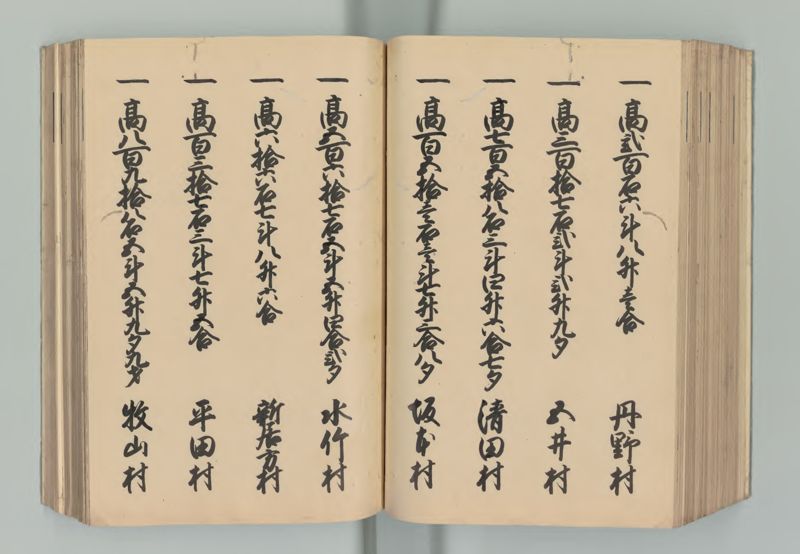 一高弐百石六斗八升壱合 丹野村
一高三百拾七石弐斗弐升九夕 五井村
一高七百五拾八石三斗四升六合七夕 清田村
一高百五拾壱石壱斗七升三合八夕 坂本村
一高五百六拾七石五斗五升四合弐夕 水竹村
一高六拾六石七斗八升六合 新居方村
一高百三拾七石三斗七升五合 平田村
一高八百九拾八石五斗五升九夕九才 牧山村